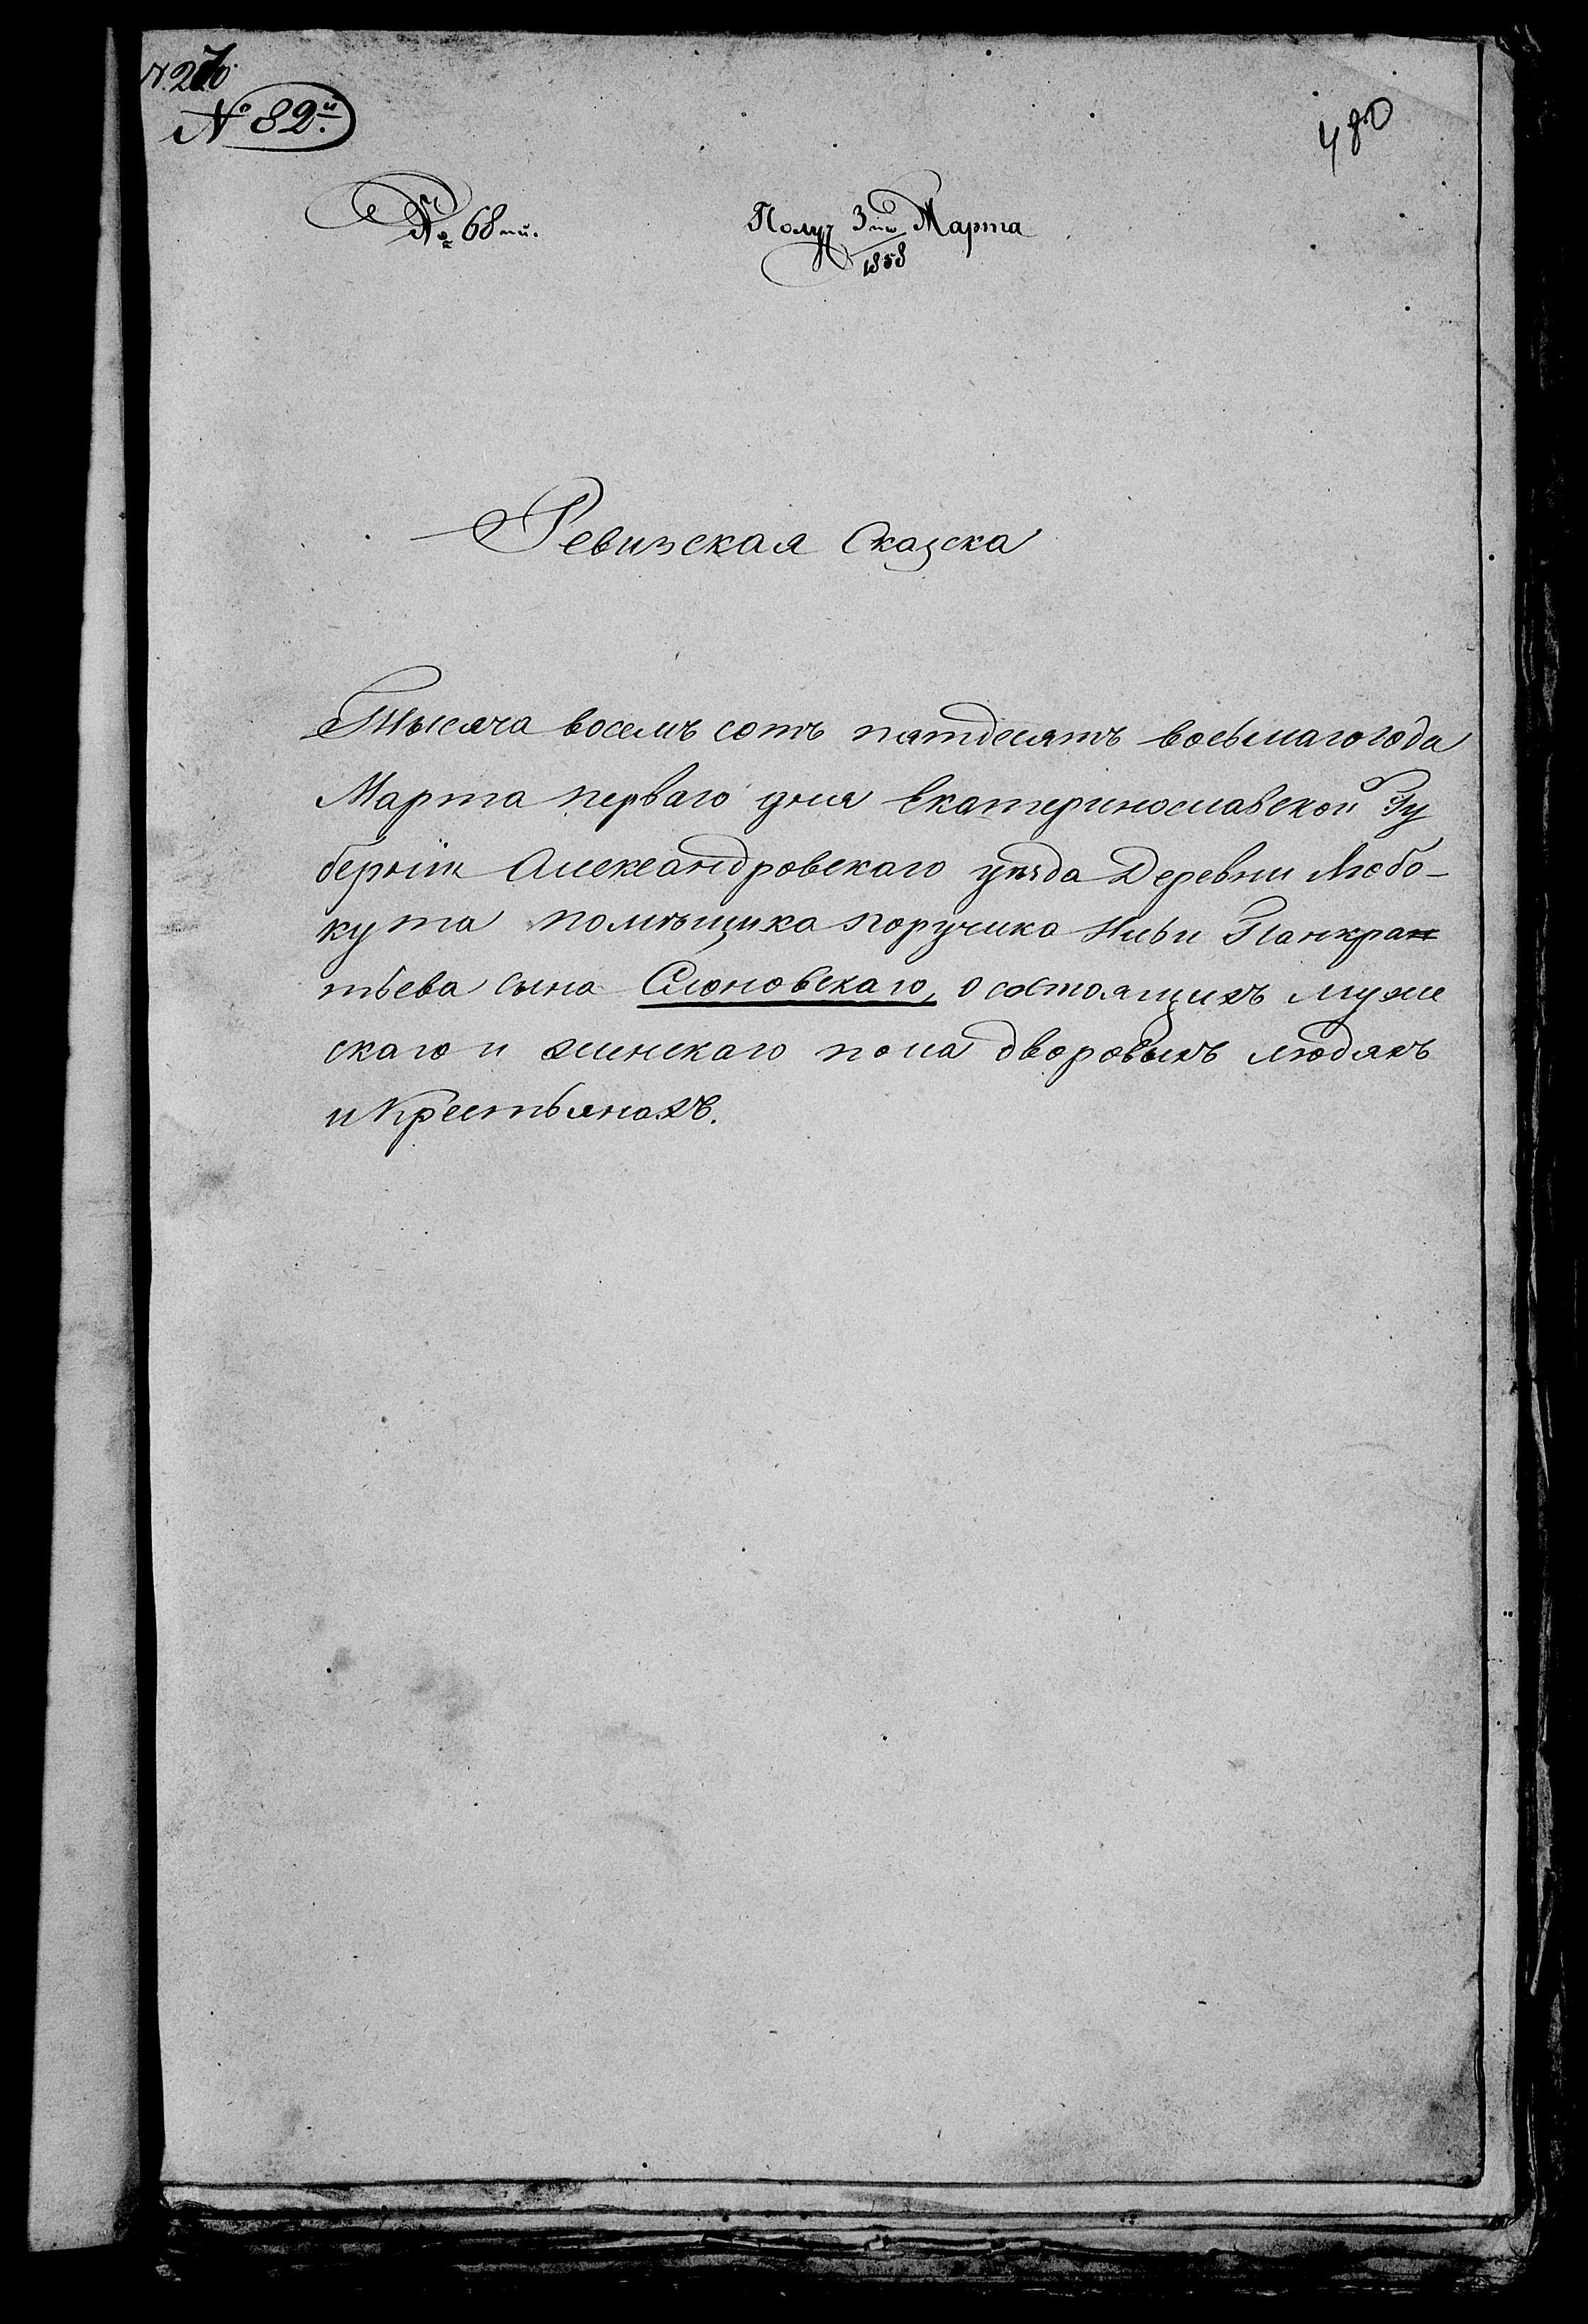 № 82й
480
№ 68й.
Получ 3го Марта
1858
Ревизская Сказска
Тысяча восемъ сотъ пятдесятъ восьмаго года
Марта перваго дня Екатеринославской Гу
берніи Александровскаго уѣзда Деревни Любо-
кута помѣщика поручика Ильи Панкра
тьева сына Слоновскаго, о состоящихъ муже
скаго и женскаго пола дворовыхъ людяхъ
и Крестьянахъ.